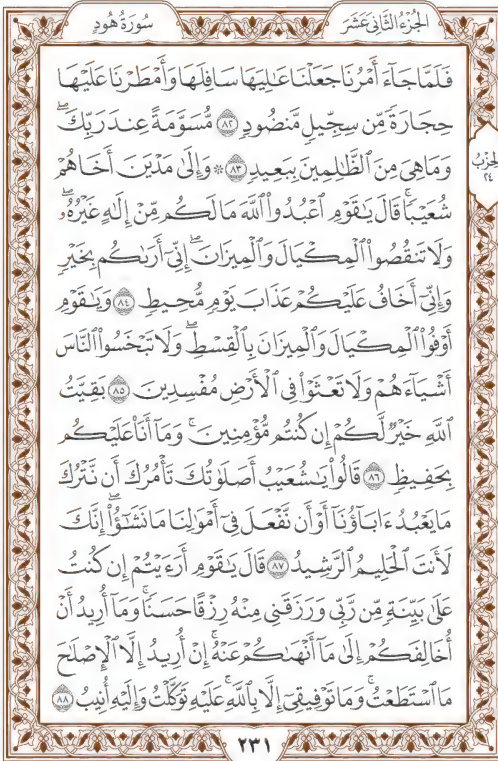 الجُزْءُ الثَّانِي عَشَرَ
سُورَةُ هُودٍ
فَلَمَّا جَآءَ أَمْرُنَا جَعَلْنَا عَٰلِيَهَا سَافِلَهَا وَأَمْطَرْنَا عَلَيْهَا
حِجَارَةً مِّن سِجِّيلٍ مَّنضُودٍ ٨٢ مُّسَوَّمَةً عِندَ رَبِّكَۖ
وَمَا هِيَ مِنَ ٱلظَّٰلِمِينَ بِبَعِيدٍ ٨٣ ۞ وَإِلَىٰ مَدْيَنَ أَخَاهُمْ
الحِزْبُ
٢٤
شُعَيْبًاۚ قَالَ يَٰقَوْمِ ٱعْبُدُوا۟ ٱللَّهَ مَا لَكُم مِّنْ إِلَٰهٍ غَيْرُهُۥۖ
وَلَا تَنقُصُوا۟ ٱلْمِكْيَالَ وَٱلْمِيزَانَۖ إِنِّىٓ أَرَىٰكُم بِخَيْرٍ
وَإِنِّىٓ أَخَافُ عَلَيْكُمْ عَذَابَ يَوْمٍ مُّحِيطٍ ٨٤ وَيَٰقَوْمِ
أَوْفُوا۟ ٱلْمِكْيَالَ وَٱلْمِيزَانَ بِٱلْقِسْطِۖ وَلَا تَبْخَسُوا۟ ٱلنَّاسَ
أَشْيَآءَهُمْ وَلَا تَعْثَوْا۟ فِى ٱلْأَرْضِ مُفْسِدِينَ ٨٥ بَقِيَّتُ
ٱللَّهِ خَيْرٌ لَّكُمْ إِن كُنتُم مُّؤْمِنِينَۚ وَمَآ أَنَا۠ عَلَيْكُم
بِحَفِيظٍ ٨٦ قَالُوا۟ يَٰشُعَيْبُ أَصَلَوٰتُكَ تَأْمُرُكَ أَن نَّتْرُكَ
مَا يَعْبُدُ ءَابَآؤُنَآ أَوْ أَن نَّفْعَلَ فِىٓ أَمْوَٰلِنَا مَا نَشَٰٓؤُا۟ۖ إِنَّكَ
لَأَنتَ ٱلْحَلِيمُ ٱلرَّشِيدُ ٨٧ قَالَ يَٰقَوْمِ أَرَءَيْتُمْ إِن كُنتُ
عَلَىٰ بَيِّنَةٍ مِّن رَّبِّى وَرَزَقَنِى مِنْهُ رِزْقًا حَسَنًاۚ وَمَآ أُرِيدُ أَنْ
أُخَالِفَكُمْ إِلَىٰ مَآ أَنْهَىٰكُمْ عَنْهُۚ إِنْ أُرِيدُ إِلَّا ٱلْإِصْلَٰحَ
مَا ٱسْتَطَعْتُۚ وَمَا تَوْفِيقِىٓ إِلَّا بِٱللَّهِۚ عَلَيْهِ تَوَكَّلْتُ وَإِلَيْهِ أُنِيبُ ٨٨
٢٣١